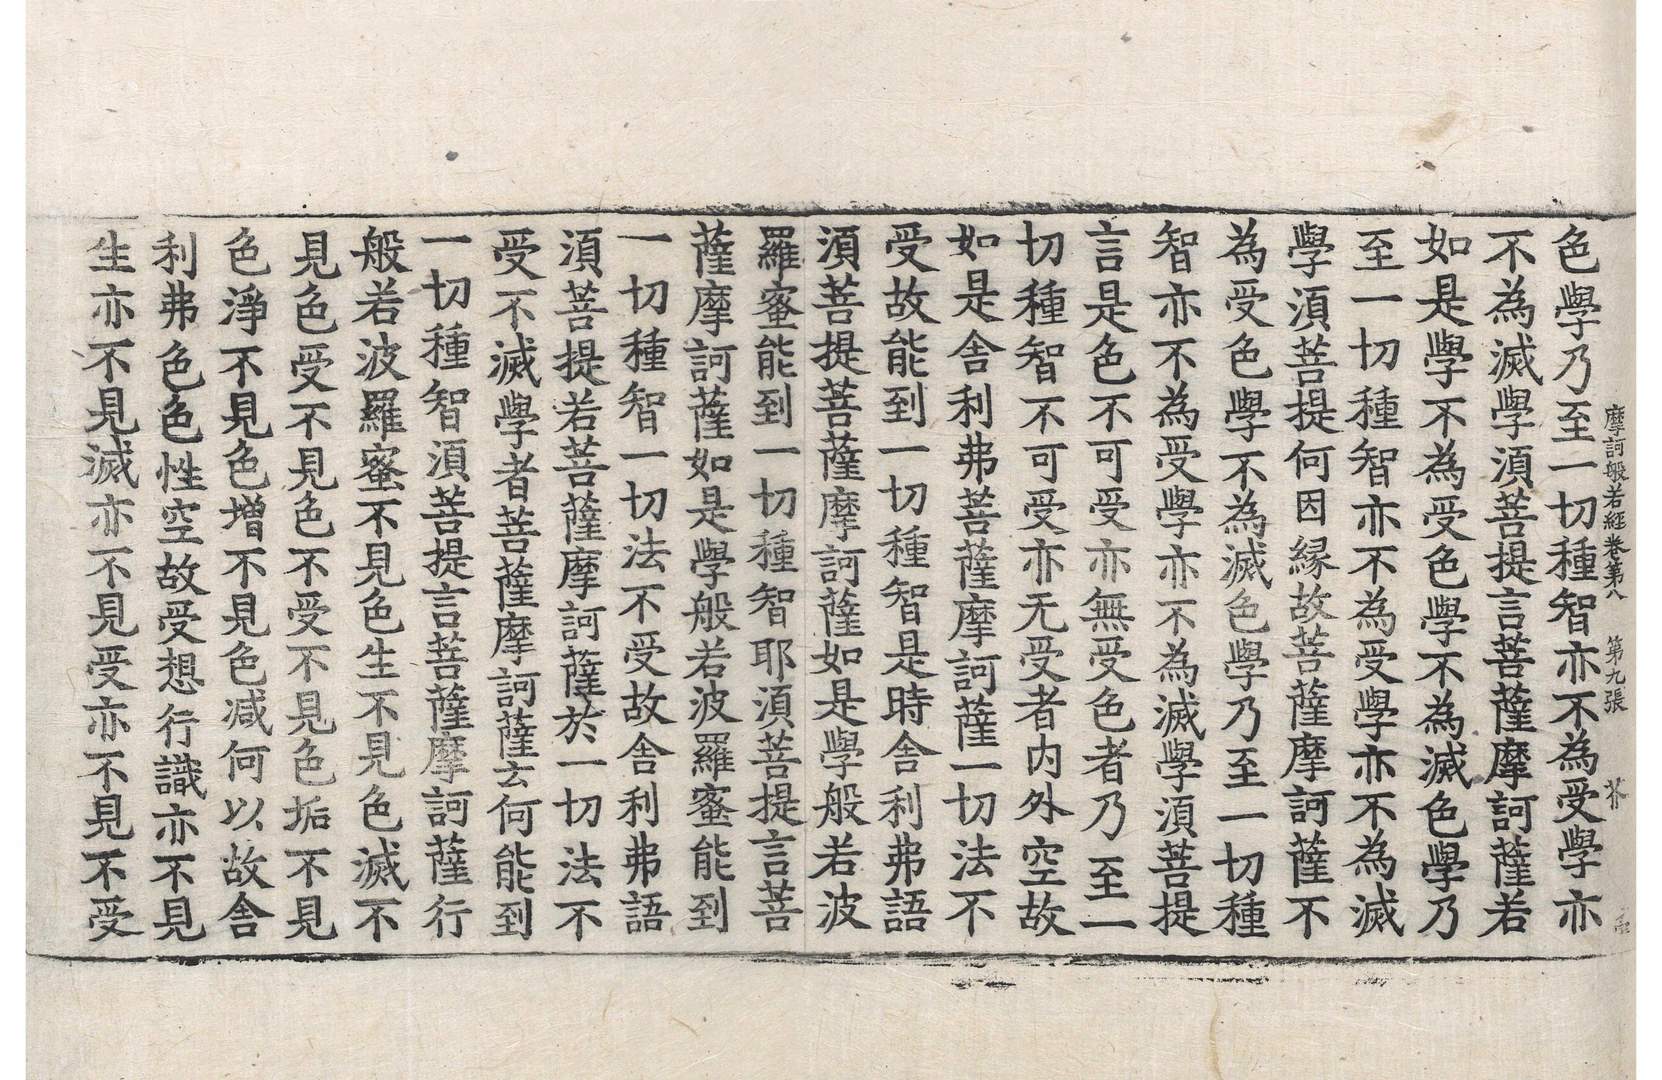 摩訶般若經卷第八 第九張 芥
色學乃至一切種智亦不為受學亦
不為滅學須菩提言菩薩摩訶薩若
如是學不為受色學不為滅色學乃
至一切種智亦不為受學亦不為滅
學須菩提何因緣故菩薩摩訶薩不
為受色學不為滅色學乃至一切種
智亦不為受學亦不為滅學須菩提
言是色不可受亦無受色者乃至一
切種智不可受亦无受者內外空故
如是舍利弗菩薩摩訶薩一切法不
受故能到一切種智是時舍利弗語
須菩提菩薩摩訶薩如是學般若波
羅蜜能到一切種智耶須菩提言菩
薩摩訶薩如是學般若波羅蜜能到
一切種智一切法不受故舍利弗語
須菩提若菩薩摩訶薩於一切法不
受不滅學者菩薩摩訶薩云何能到
一切種智須菩提言菩薩摩訶薩行
般若波羅蜜不見色生不見色滅不
見色受不見色不受不見色垢不見
色淨不見色增不見色減何以故舍
利弗色色性空故受想行識亦不見
生亦不見滅亦不見受亦不見不受